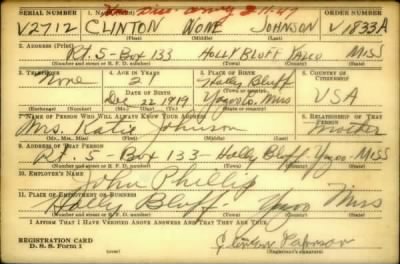 SERIAL NUMBER 1. NAME (Print) ORDER NUMBER
V2712 CLINTON NONE JOHNSON V1833A
(First) (Middle) (Last)
2. ADDRESS (Print)
Rt. 5-Box 133 HOLLY BLUFF YAZOO MISS
(Number and street or R. F. D. number) (Town) (County) (State)
3. TELEPHONE 4. AGE IN YEARS 5. PLACE OF BIRTH 6. COUNTRY OF CITIZENSHIP
None Holly Bluff
DATE OF BIRTH (Town or county)
Dec 22 1919 Miss USA
(Exchange) (Number) (Mo.) (Day) (Yr.) (State or country)
7. NAME OF PERSON WHO WILL ALWAYS KNOW YOUR ADDRESS 8. RELATIONSHIP OF THAT PERSON
Mrs. Katie Johnson Mother
(Mr., Mrs., Miss) (First) (Middle) (Last)
9. ADDRESS OF THAT PERSON
Rt. 5 Box 133- Holly Bluff Yazoo - MISS
(Number and street or R. F. D. number) (Town) (County) (State)
10. EMPLOYER'S NAME
John Phillip
11. PLACE OF EMPLOYMENT OR BUSINESS
Holly Bluff Yazoo Miss
(Number and street or R. F. D. number) (Town) (County) (State)
I AFFIRM THAT I HAVE VERIFIED ABOVE ANSWERS AND THAT THEY ARE TRUE.
REGISTRATION CARD
D. S. S. Form 1 (Registrant's signature)